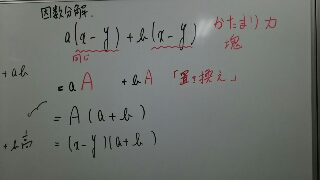 因数分解.
a(x-y)+b(x-y)
かたまり力
同じ
塊
+ab
=aA +bA 「置き換え」
=A(a+b)
=(x-y)(a+b)